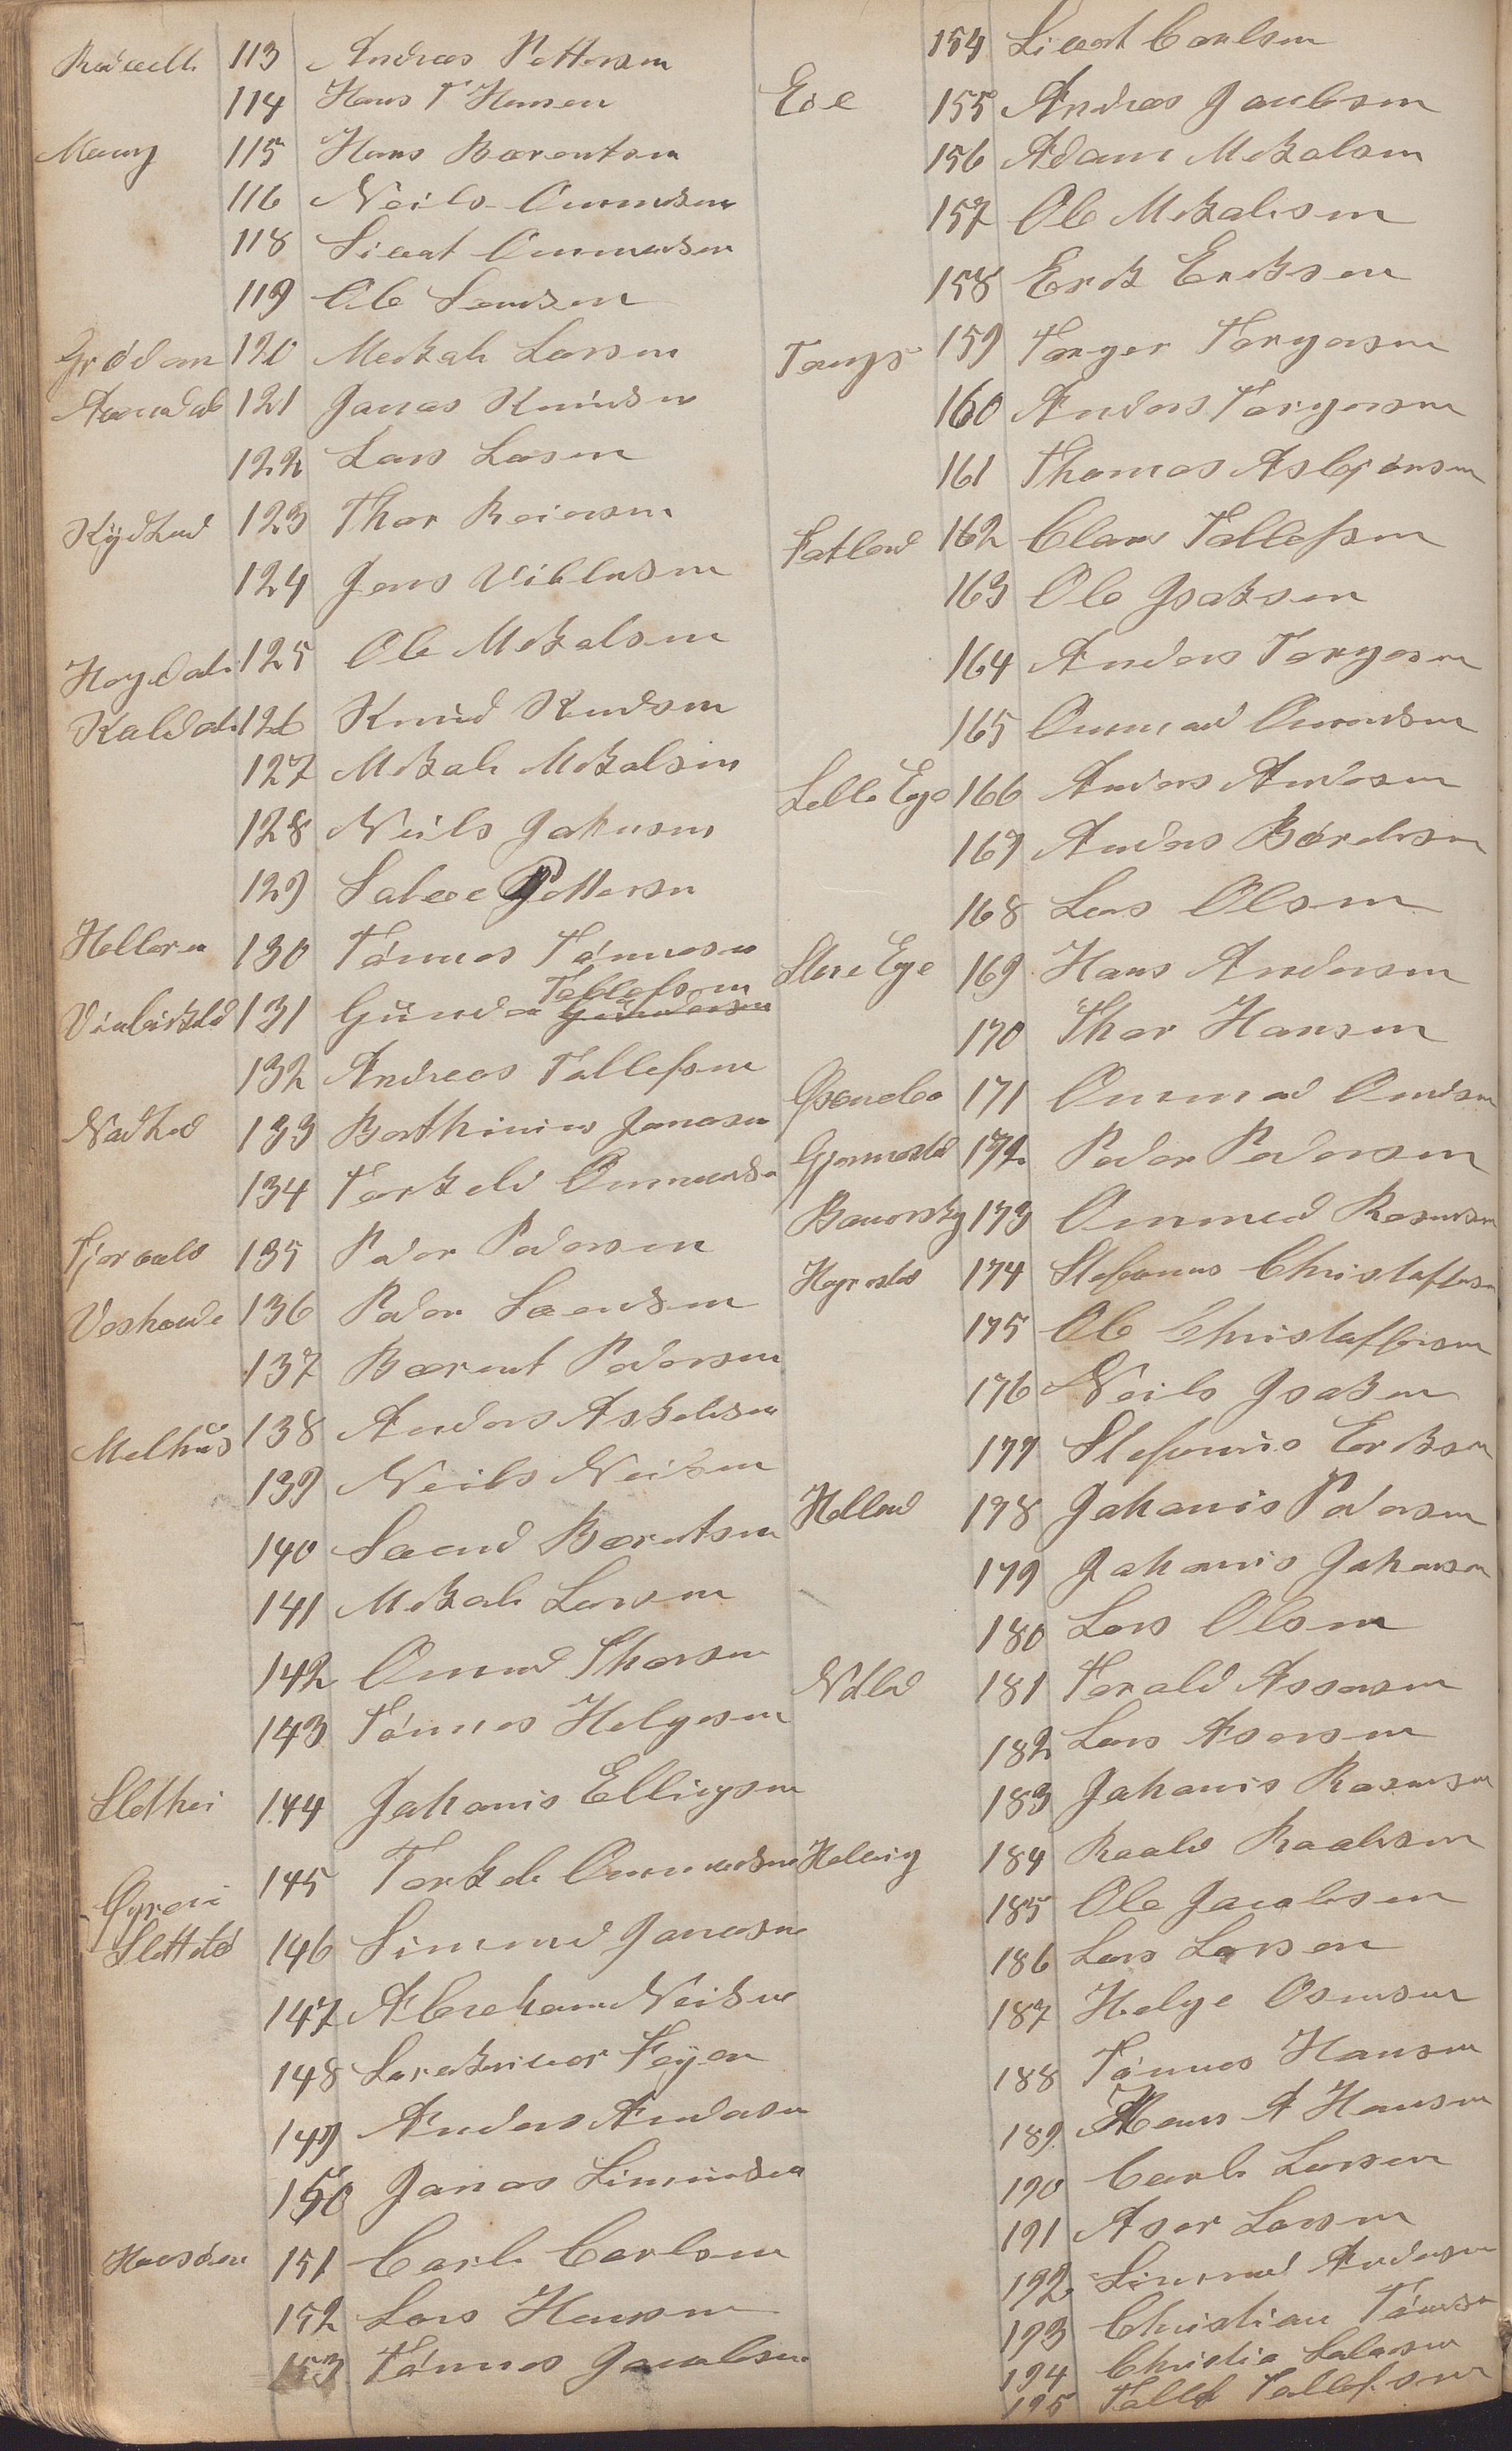 113 Andreas Pettersen
114 Hans T Hansen
115 Hans Barentsen
116 Neils Ommundsen
118 Sivert Ommundsen
119 Ole Svendsen
Grödem 120 Mickale Larsen
Aarredal 121 Janas Knudsen
122 Lars Larsen
Kÿdland 123 Thor Reiersen
124 Jens Villumsen
Høydal 125 Ole Mekalsen
Kaldal 126 Knud Knudsen
127 Mekale Mekalsen
128 Neils Jahnsen
129 Salve Pettersen
Helleren 130 Tönnes Tönnesen
Tollefsen
131 Gunder Gundersen
132 Andreas Tollefsen
Nadland 133 Barthinius Janasen
134 Torkeld Ommundsen
135 Peder Pedersen
Veshovde 136 Peder Svendsen
137 Barent Pedersen
Melhus 138 Anders Askelsen
139 Neils Neilsen
140 Svend Barentsen
141 Mekale Larsen
142 Omund Thorsen
143 Tönnes Helgesen
Slethei 144 Jahanis Ellingsen
145 Torkele Ommundsen
146 Simmud Janassen
147 Abreham Neilsen
148 Feÿer
149 Anders Andersen
150 Janas Simundsen
151 Carle Carlsen
152 Lars Hansen
153 Tönnes Jacobsen
154 Sivert Carlsen
Eie 155 Andreas Jacobsen
156 Adam Mekalsen
157 Ole Mekalsen
158 Erik Eriksen
159 Torger Torgersen
160 Anders Torgersen
161 Thomas Asbjørnsen
Fatland 162 Claus Tollefsen
163 Ole Isaksen
164 Anders Torgersen
165 Ommund Omundsen
Lelle Ege 166 Anders Andersen
167 Anders Bördesen
168 Lars Olsen
Store Ege 169 Hans Andersen
170 Thor Hansen
171 Ommund Omdsen
172 Peder Pedersen
173 Ommund Rasmusen
174 Stefanus Christaffersen
175 Ole Christaffersen
176 Neils Isaksen
177 Stefanus Eriksen
Helland 178 Jahanis Pedersen
179 Jahanis Jahansen
180 Lars Olsen
181 Torald Assersen
182 Lars Asersen
183 Jahanis Rasmusen
Helvig 184 Raald Raaldsen
185 Ole Jacobsen
186 Lars Larsen
187 Helge Osmusen
188 Tönnes Hansen
189 Hans A Hansen
190 Carle Larsen
191 Aser Larsen
192 Simmud Andersen
193 Christian Tönnesen
194 Christia Salvesen
195 Tollef Tollefsen